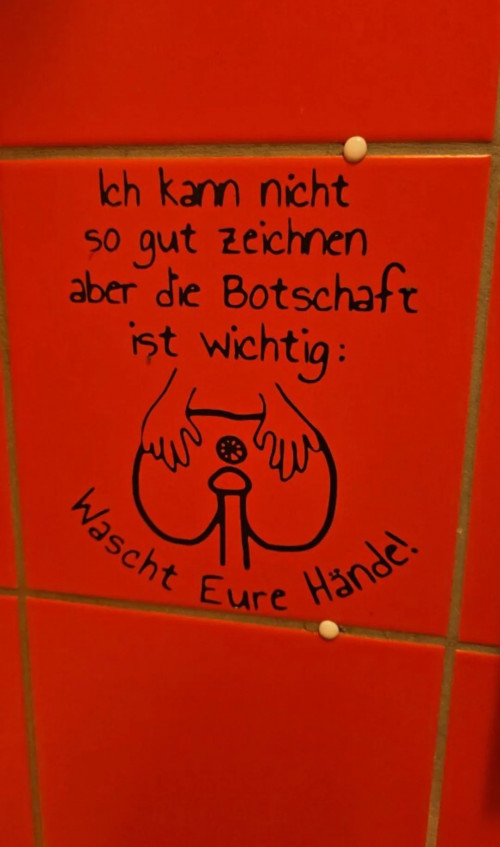 Ich kann nicht
so gut zeichnen
aber die Botschaft
ist wichtig:
Wascht Eure Hände!